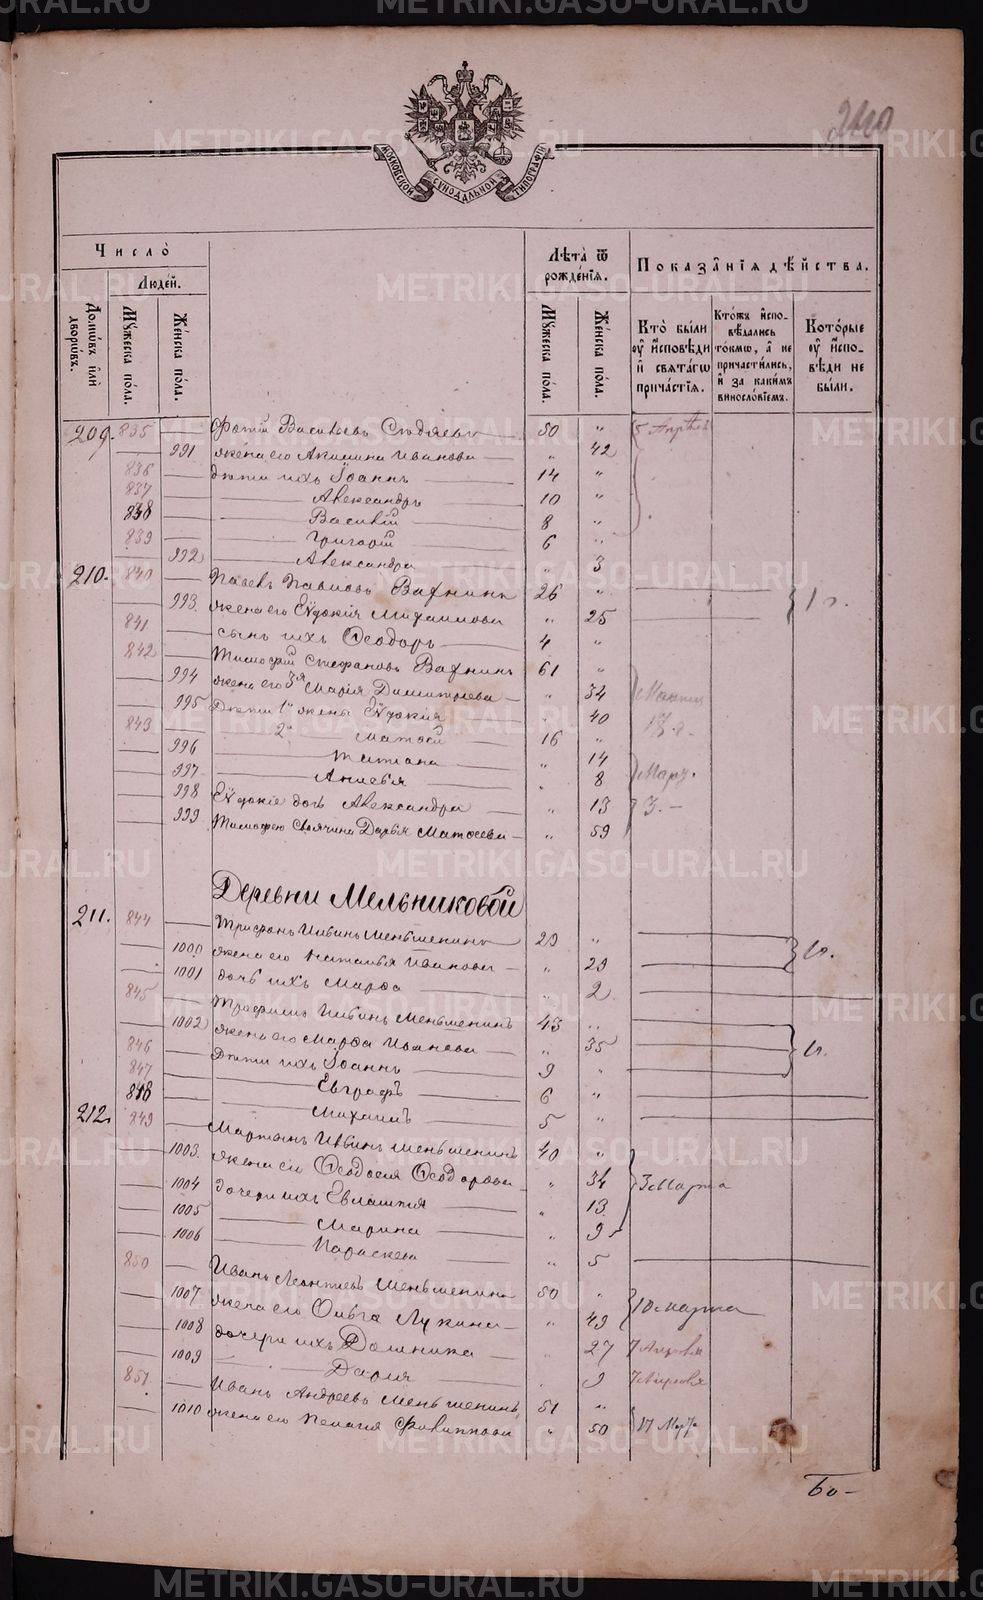 METRIKI.GASO-URAL.RU
МОСКОВСКОЙ СѴНОДАЛЬНОЙ ТИПОГРАФІИ
Число̀
Людей.
Домѡвъ и҆лѝ дворѡвъ.
Мꙋжеска по́ла.
Же́нска по́ла.
Лѣта̀ ѿ рожде́нїѧ.
Мꙋжеска по́ла.
Же́нска по́ла.
Показа̂нїѧ дѣ́йства.
Кто̀ бы́ли оу҆ и҆сповѣди и҆ свѧта́гѡ прича́стїѧ.
Кто́жъ и҆спо- вѣдались то́кмѡ, а҆ не причасти́лись, и҆ за каки́мъ винословїемъ.
Кото́рые оу҆ и҆спо- вѣди не бы́ли.
209. 835 Фотій Васильевъ 50 " 5 Апрѣля
991 жена его Акилина Иванова " 42
836 дѣти ихъ Іоаннъ 14 "
837 Александръ 10 "
838 Василій 8 "
839 Григорій 6 "
992 Александра " 3
210. 840 Павелъ Павловъ Вахнинъ 26 " 1 г.
993. жена его Еѵдокія Михаилова " 25
841 сынъ ихъ Ѳеодоръ 4 "
842 Тимофей Стефановъ Вахнинъ 61 "
994 жена его 3я Марія Димитріева " 34
995 Дѣти 1й жены Еѵдокія 40
843 2й Матѳей 16 "
996 Татіана " 14
997 Анисія 8 Март.
998 Еѵдокіе дочь Александра 13 3.
999 Тимофею Своячина Дарья Матѳеева " 59
Деревни Мельниковой
211. 844 Трифонъ Ивинъ Меньшенинъ 29 " 1 г.
1000 жена его Наталья Иванова " 29
1001 дочь ихъ Марѳа 2
845 Трофимъ Ивинъ Меньшенинъ 43 "
1002 жена его Марѳа Иванова " 35 1 г.
846 Дѣти ихъ Іоаннъ 9 "
847 Евграфъ 6 "
848 Михаилъ 5 "
212. 849 Мартинъ Ивинъ Меньшенинъ 40 "
1003. жена его Ѳеодосія Ѳеодорова " 34 3 Марта
1004 дочери ихъ Евлампія " 13
1005 Марина " 9
1006 Параскева " 5
850 Иванъ Леонтіевъ Меньшенинъ 50 "
1007 жена его Ольга Лукина " 49 10 марта
1008 дочери ихъ Домника 27 7 Апрѣля
1009 Дарія 9 7 Апрѣля
851 Иванъ Андреевъ Меньшенинъ 51 "
1010 жена его Пелагія Филиппова " 50 17 Марта